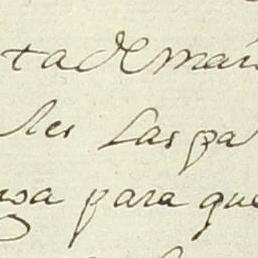 ta de man
les las pa
usa para que